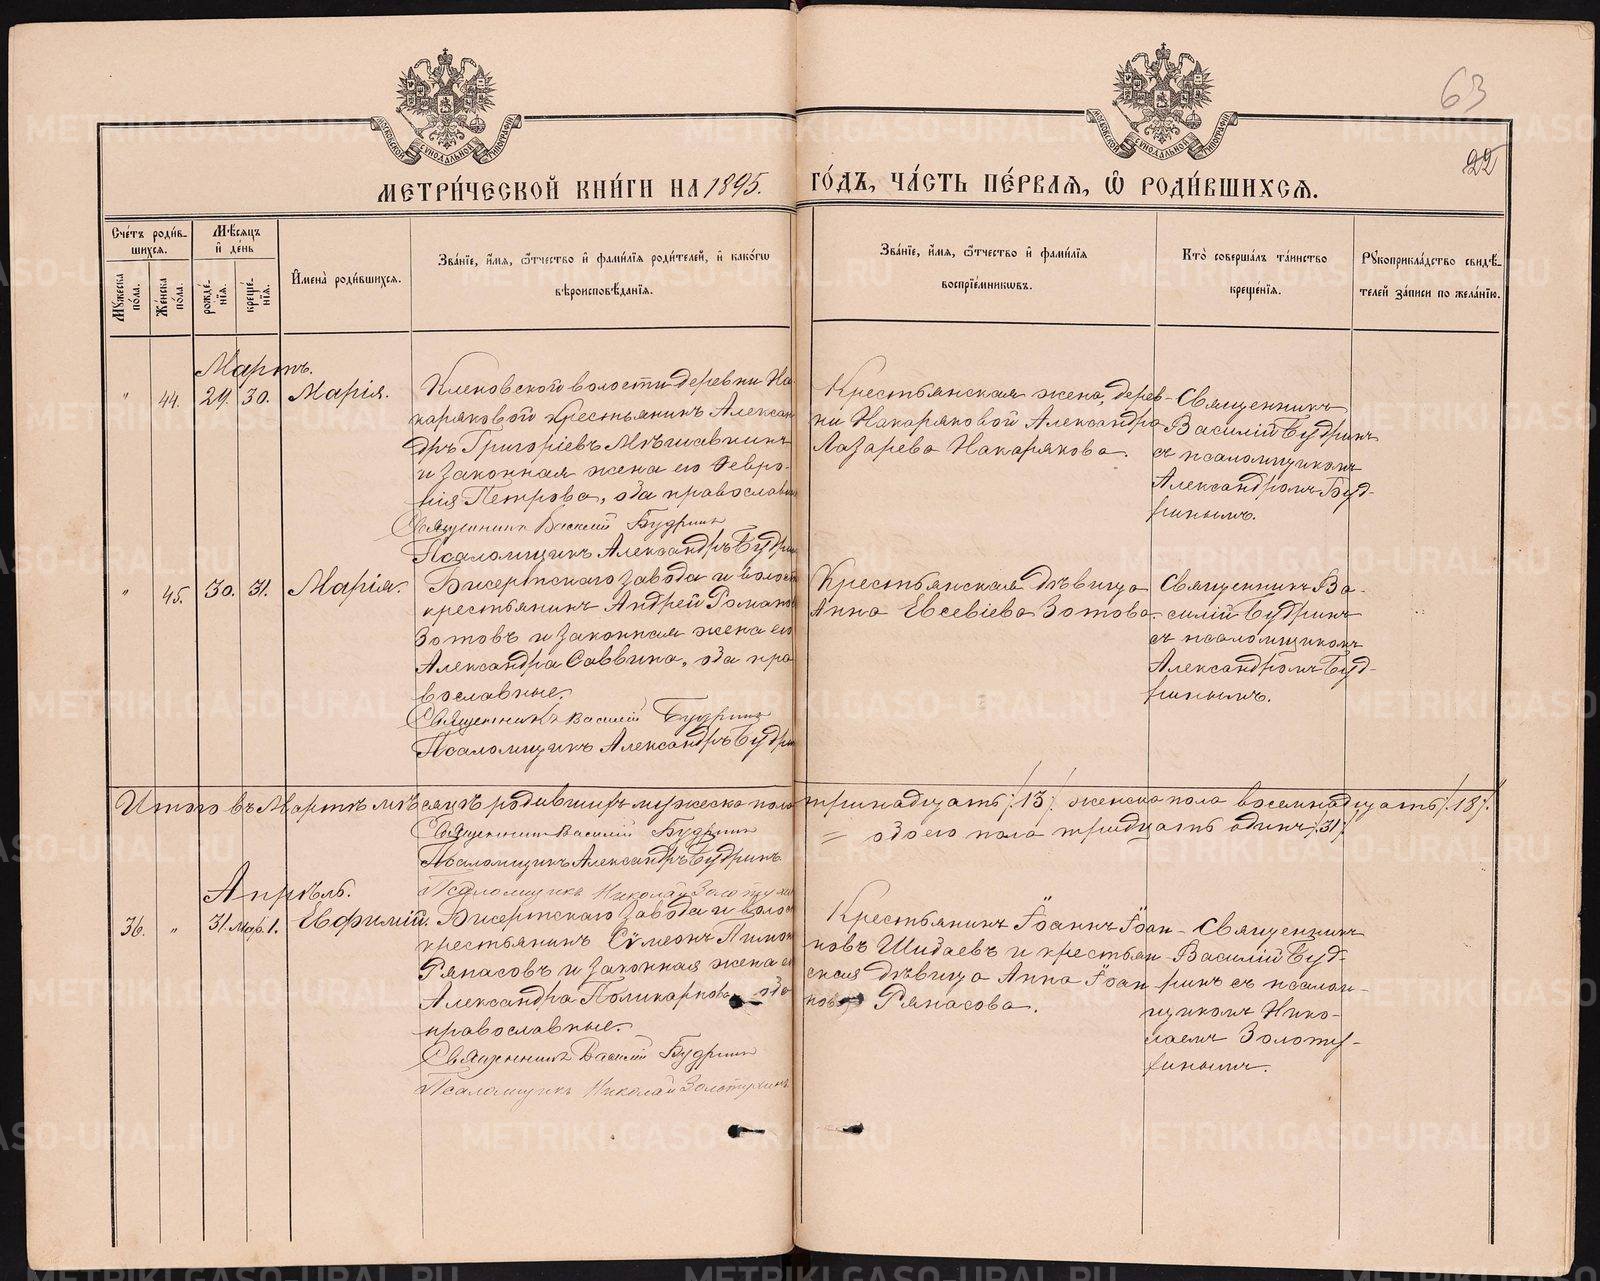 63
22
МЕТРИ́ЧЕСКОЙ КНИ́ГИ НА 1895.
ГО́ДЪ, ЧА́СТЬ ПЕ́РВАЯ, Ѿ РОДИ́ВШИХСЯ.
Сче́тъ роди́в-
шихся.
Мѣ́сяцъ
и де́нь
Му́жеска
пола.
Же́нска
пола.
рожде́-
нїя.
креще́-
нїя.
Имена̀ роди́вшихся.
Зва́нїе, и́мя, ѻ́тчество и фами́лїя роди́телей, и како́гѡ
вѣроисповѣ́данїя.
Зва́нїе, и́мя, ѻ́тчество и фами́лїя
воспрїе́мникѡвъ.
Кто̀ соверша́лъ та́инство
креще́нїя.
Рꙋкоприкла́дство свидѣ́-
телей за́писи по жела́нїю.
Мартъ.
" 44. 29. 30. Марія.
Кленовской волости деревни На
каряковой крестьянинъ Алексан
дръ Григоріевъ
и законная жена его Февро-
нія Петрова, оба православн
Священникъ Василій Будринъ
Псаломщикъ Александръ Будри
Крестьянская жена, дерев-
ни Накаряковой Александра
Лазарева Накарякова.
Священникъ
Василій Будринъ
съ псаломщикомъ
Александромъ Буд-
ринымъ.
" 45. 30. 31. Марія.
Бисертскаго завода и волост
крестьянинъ Андрей Романо
Зотовъ и законная жена его
Александра Саввина, оба пра
вославные.
Священникъ Василій Будринъ
Псаломщикъ Александръ Будри
Крестьянская дѣвица
Анна Евсевіева Зотова.
Священникъ Ва-
силій Будринъ
съ псаломщикомъ
Александромъ Буд-
ринымъ.
Итого въ Мартѣ мѣсяцѣ родившихъ мужеска пола тринадцать /13/ женска пола восемнадцать /18/.
= обоего пола тридцать одинъ /31/
Священникъ Василій Будринъ
Псаломщикъ Александръ Будринъ.
Псаломщикъ Николай Золотухин
Апрѣль.
36. " 31. мар. 1. Евфимій.
Бисертскаго завода и волост
крестьянинъ Сѵмеонъ
Ряпасовъ и законная жена е
Александра Поликарпова оба
православные.
Священникъ Василій Будринъ
Псаломщикъ Николай Золотухинъ
Крестьянинъ Іоаннъ Іоан-
новъ Шидаевъ и крестьян-
ская дѣвица Анна Іоан
нова Ряпасова.
Священникъ
Василій Буд-
ринъ съ псалом-
щикомъ Нико-
лаемъ Золоту-
хинымъ.